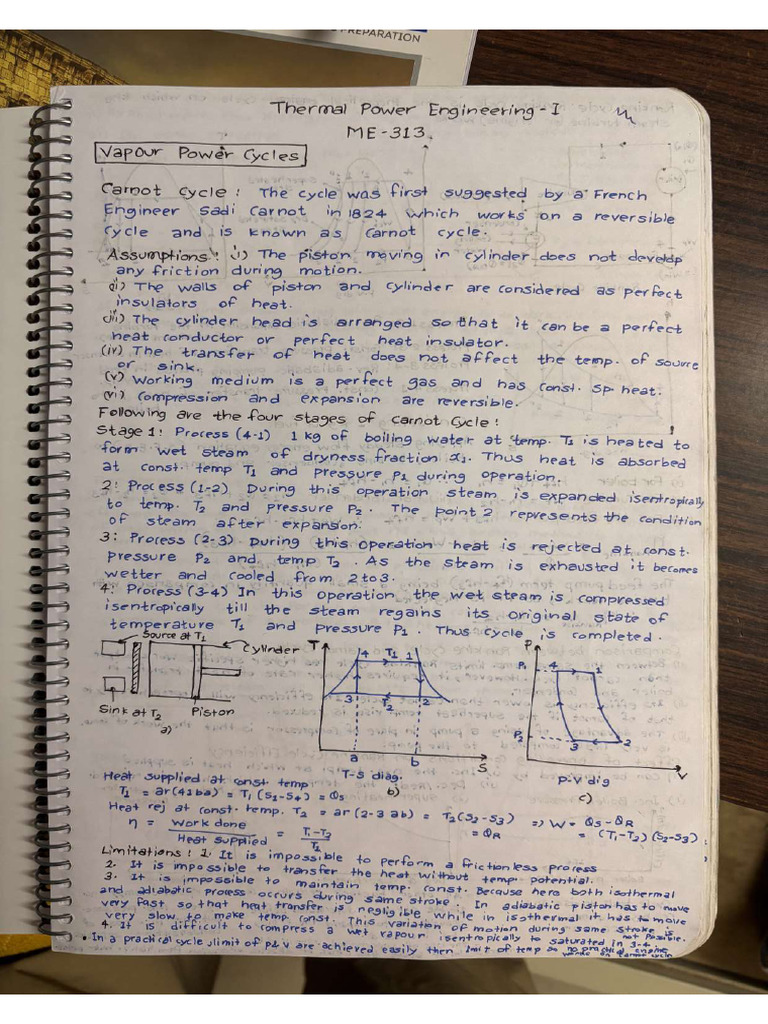 PREPARATION
Thermal Power Engineering - I
ME-313.
Vapour Power Cycles
Carnot Cycle : The cycle was first suggested by a French
Engineer Sadi Carnot in 1824 which works on a reversible
cycle and is known as Carnot cycle.
Assumptions : i) The piston moving in cylinder does not develop
any friction during motion.
ii) The walls of piston and cylinder are considered as perfect
insulators of heat.
iii) The cylinder head is arranged so that it can be a perfect
heat conductor or perfect heat insulator.
(iv) The transfer of heat does not affect the temp. of source
or sink.
(v) Working medium is a perfect gas and has const. sp heat.
(vi) Compression and expansion are reversible.
Following are the four stages of Carnot Cycle :
Stage 1 : Process (4-1) 1 kg of boiling water at temp. T₁ is heated to
form wet steam of dryness fraction x₁. Thus heat is absorbed
at const. temp T₁ and pressure P₁ during operation.
2 : Process (1-2) During this operation steam is expanded isentropically
to temp. T₂ and pressure P₂. The point 2 represents the condition
of steam after expansion.
3 : Process (2-3) During this operation heat is rejected at const.
pressure P₂ and temp T₂. As the steam is exhausted it becomes
wetter and cooled from 2 to 3.
4 : Process (3-4) In this operation the wet steam is compressed
isentropically till the steam regains its original state of
temperature T₁ and pressure P₁. Thus cycle is completed.
Source at T₁
Cylinder
Sink at T₂
Piston
a)
T
4 T₁ 1
3 T₂ 2
a b
S
T-S diag.
b)
P
P₁ 4 1
P₂ 3 2
V
P-V dig
c)
Heat supplied at const temp.
T₁ = ar(41ba) = T₁(S₁-S₄) = Qs
Heat rej at const. temp. T₂ = ar(2-3 ab) = T₂(S₂-S₃) = QR
=> W = Qs - QR
= (T₁-T₂)(S₂-S₃)
η = Work done / Heat supplied = T₁-T₂ / T₂
Limitations : 1. It is impossible to perform a frictionless process
2. It is impossible to transfer the heat without temp potential.
3. It is impossible to maintain temp. const. Because here both isothermal
and adiabatic process occurs during same stroke. In adiabatic piston has to move
very fast so that heat transfer is negligible while in isothermal it has to move
very slow to make temp const. This variation of motion during same stroke is
not possible.
4. It is difficult to compress a wet vapour isentropically to saturated in 3-4.
• In a practical cycle limit of P & V are achieved easily then limit of temp so no practical engine
works on Carnot cycle